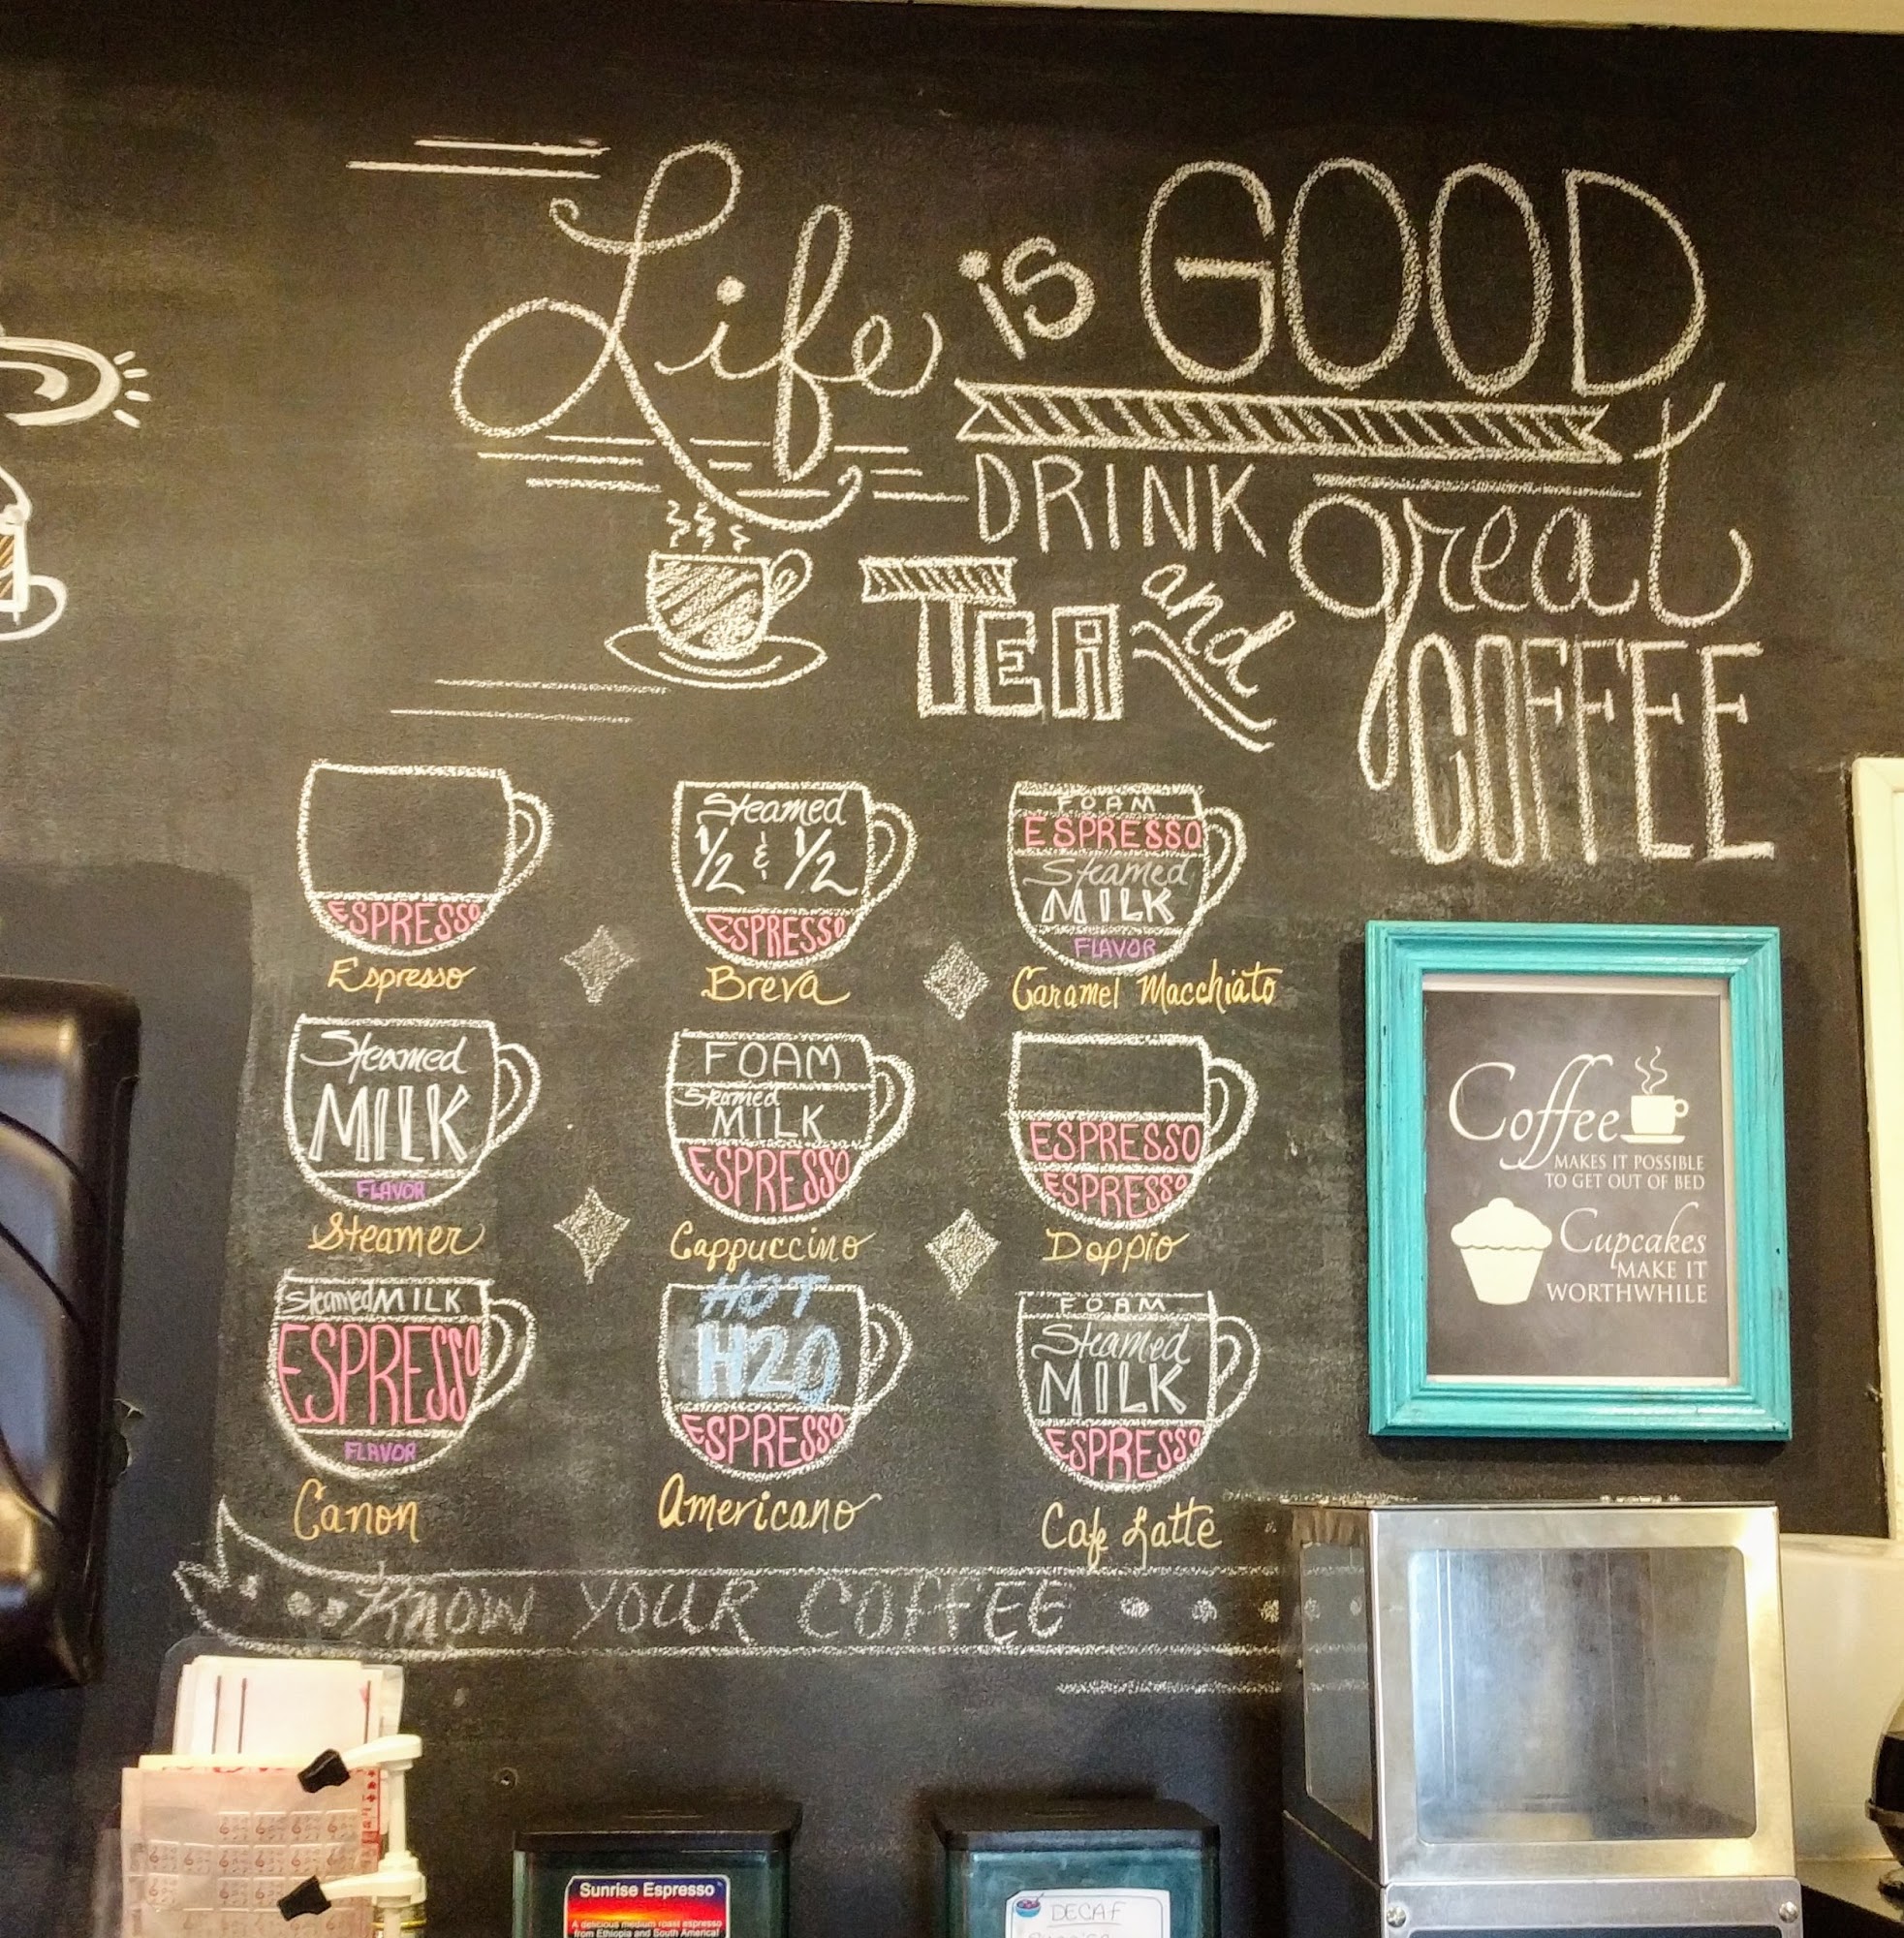 Life is GOOD
DRINK great
TEA and COFFEE
ESPRESSO
Espresso
Steamed
1/2 & 1/2
ESPRESSO
Breva
FOAM
ESPRESSO
Steamed
MILK
FLAVOR
Caramel Macchiato
Steamed
MILK
FLAVOR
Steamer
FOAM
Steamed
MILK
ESPRESSO
Cappuccino
ESPRESSO
ESPRESSO
Doppio
Steamed MILK
ESPRESSO
FLAVOR
Canon
HOT
H2O
ESPRESSO
Americano
FOAM
Steamed
MILK
ESPRESSO
Cafe Latte
KNOW YOUR COFFEE
Coffee
MAKES IT POSSIBLE
TO GET OUT OF BED
Cupcakes
MAKE IT
WORTHWHILE
Sunrise Espresso
A delicious medium roast espresso
from Ethiopia and South America!
DECAF